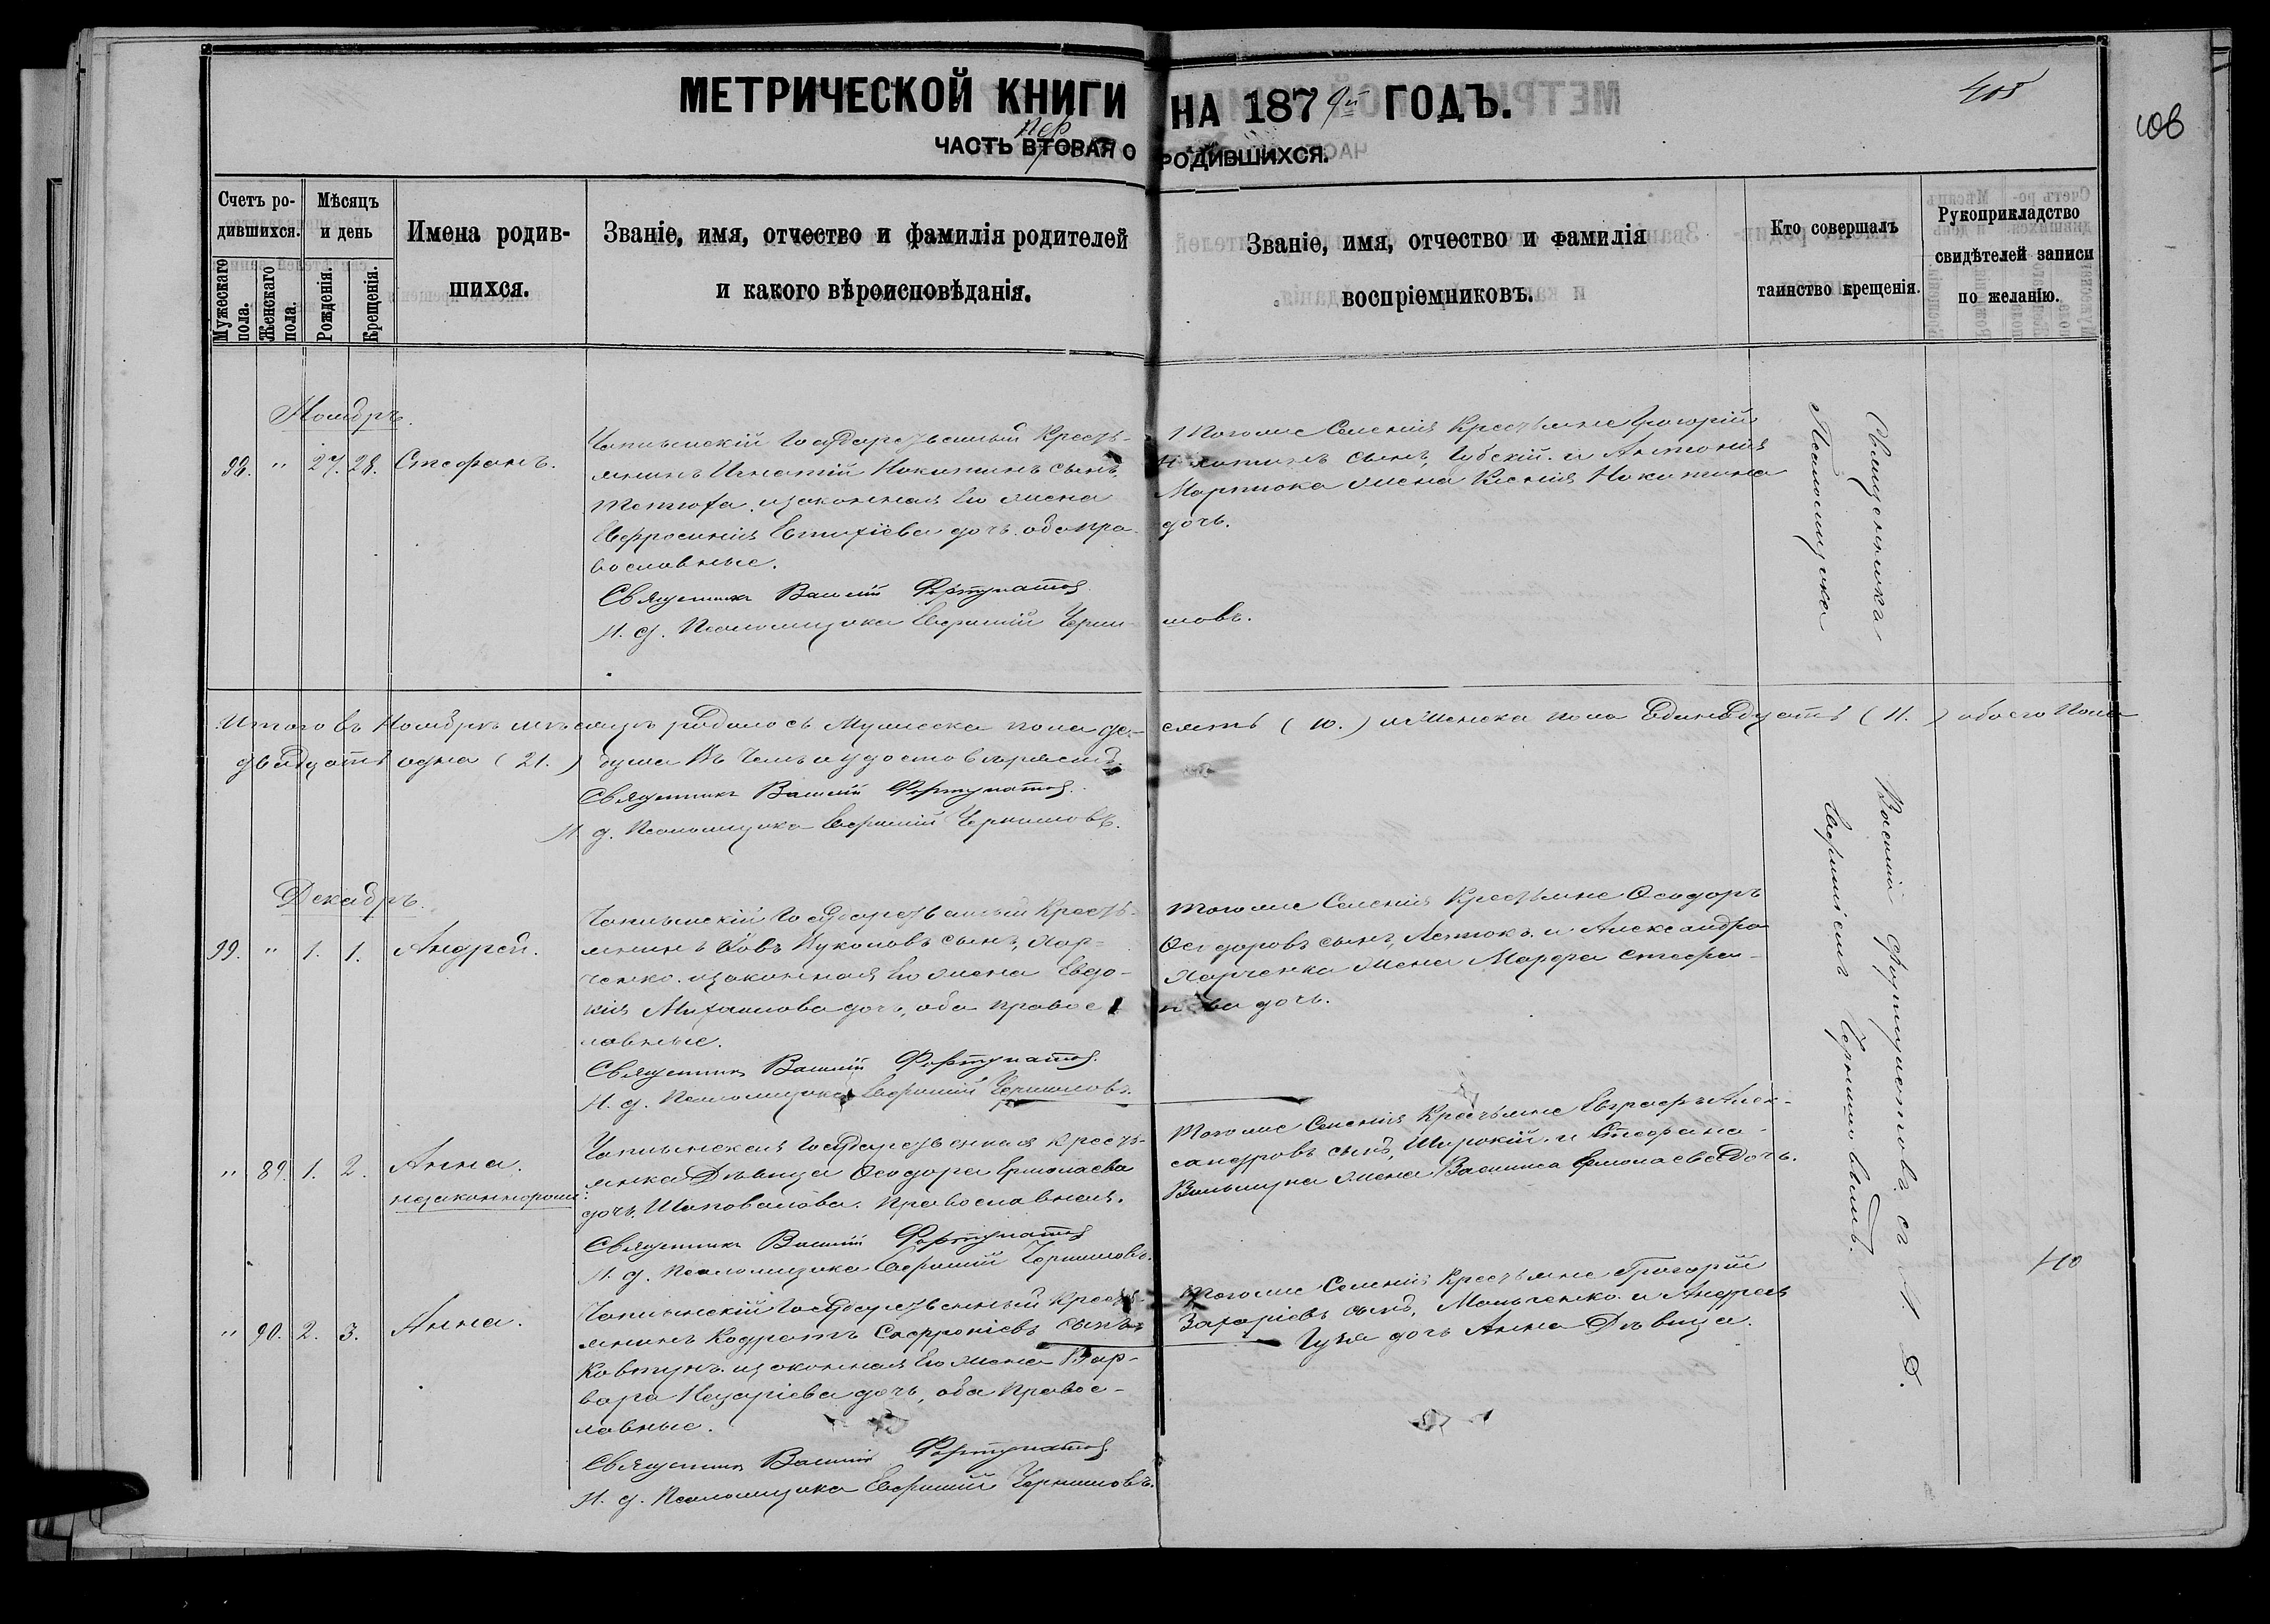 МЕТРИЧЕСКОЙ КНИГИ НА 1879й ГОДЪ.
405
ЧАСТЬ ВТОРАЯ О РОДИВШИХСЯ.
пер
Счетъ ро-
дившихся.
Мужескаго пола.
Женскаго пола.
Мѣсяцъ
и день
Рожденія.
Крещенія.
Имена родив-
шихся.
Званіе, имя, отчество и фамилія родителей
и какого вѣроисповѣданія.
Званіе, имя, отчество и фамилія
воспріемниковъ.
Кто совершалъ
таинство крещенія.
Рукоприкладство
свидѣтелей записи
по желанію.
Ноябрь.
98. " 27. 28. Стефанъ.
Государственный Кресть-
янинъ Игнатій Никитинъ сынъ,
Тетюха. и законная Его жена
Евфросинія Евтихіева дочь. оба пра-
вославные.
Священникъ Василій Фортунатов
И. д. Псаломщика Евфимій Черни-
шовъ.
Тогоже Селенія Крестьяне Григорій
сынъ, Губскій. и Антонія
Мартюка жена Ксенія Никитина
дочь.
Итого въ Ноябрѣ мѣсяцѣ родилось Мужеска пола де-
сять (10.) и Женска пола Единадцать (11.) обоего Пола
двадцать одна (21.) душа Въ чемъ и удостовѣряемъ
Священникъ Василій Фортунатов.
И. д. Псаломщика Евфимій Чернишовъ.
Декабрь.
99. " 1. 1. Андрей.
Государственный Кресть-
янинъ Іовъ Вуколовъ сынъ, Хар-
ченко. и законная Его жена Евдо-
кія Михаилова дочь, оба правос-
лавные.
Священникъ Василій Фортунатов.
И. д. Псаломщика Евфимій Чернишовъ.
Тогоже Селенія Крестьяне Ѳеодоръ
Ѳеодоровъ сынъ, Летюкъ. и Александра
Харченка жена Марфа Стефа-
нова дочь.
" 89. 1. 2. Анна.
незаконнорожд.
Государственная Кресть-
янка Дѣвица Ѳеодора Ермолаева
дочь. Шаповалова. Православная.
Священникъ Василій Фортунатов
И. д. Псаломщика Евфимій Чернишовъ.
Тогоже Селенія Крестьяне Евграфъ Алек-
сандровъ сынъ, Широкій. и Стефана
жена Василиса Ермолаева Дочь.
" 90. 2. 3. Анна.
Государственный Кресть-
янинъ Кодратъ Сафроніевъ сынъ
Ковтунъ. и законная Его жена Вар-
вара Назаріева дочь, оба Правос-
лавные.
Священникъ Василій Фортунатов.
И. д. Псаломщика Евфимій Чернишовъ.
Тогоже Селенія Крестьяне Григорій
Захаріевъ сынъ, Мальченко. и Андрея
Гузя дочь Анна Дѣвица.
Священника Василій Фортунатовъ. съ И. Д.
Псаломщика Евфиміемъ Чернишовымъ.